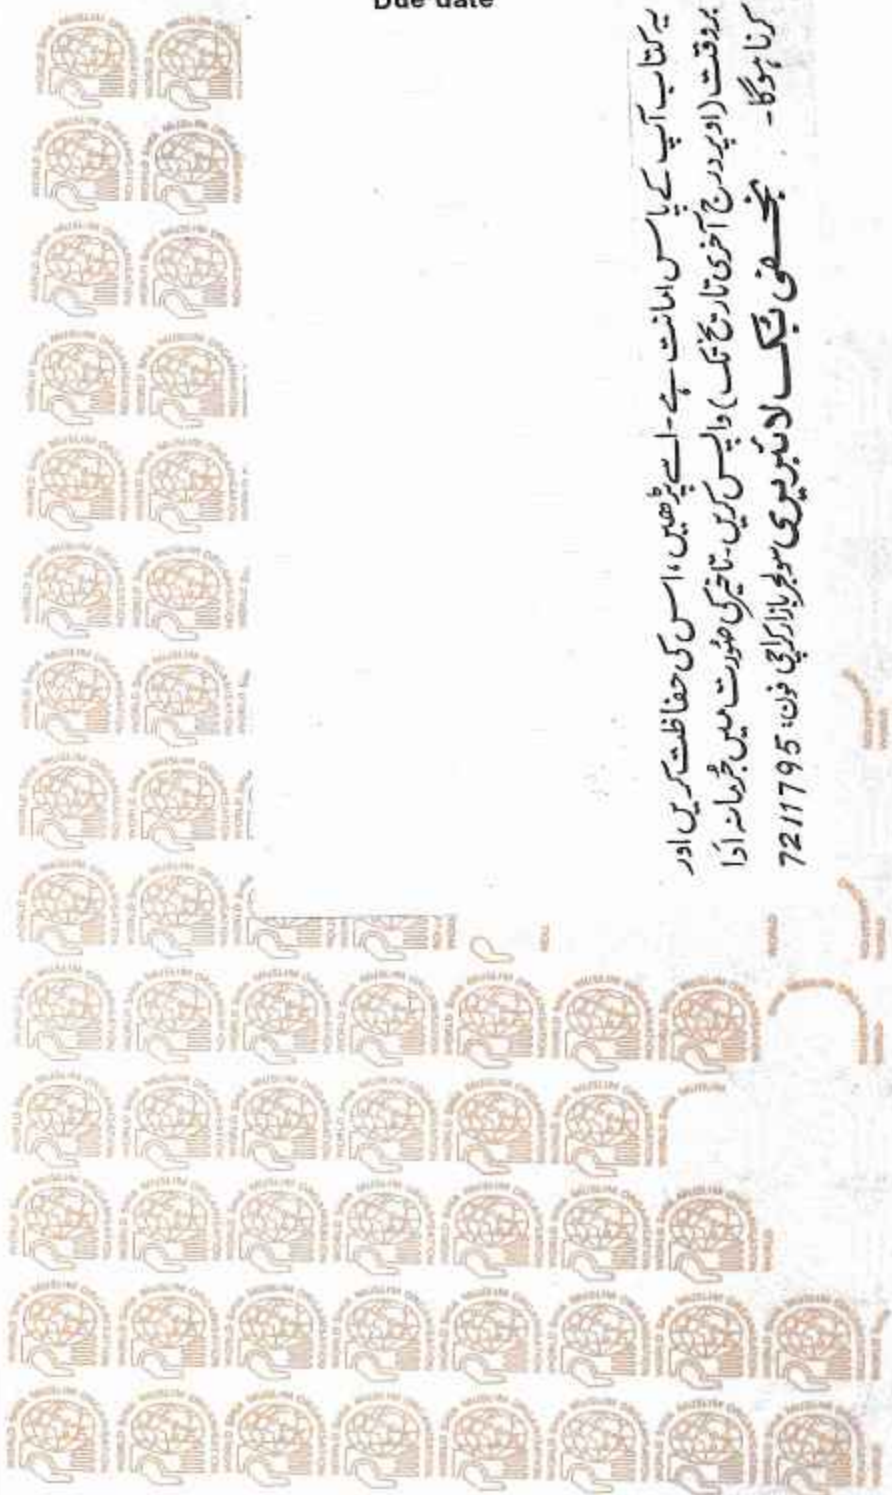 Due date
یہ کتاب آپ کے پاس امانت ہے۔ اسے پڑھیں، اس کی حفاظت کریں اور
بروقت (اوپر درج آخری تاریخ تک) واپس کریں۔ تاخیر کی صورت میں جُرمانہ ادا
کرنا ہوگا۔
نجفی بُک لائبریری سولجر بازار کراچی فون: 7211795
WORLD SHIA MUSLIM ORGANISATION